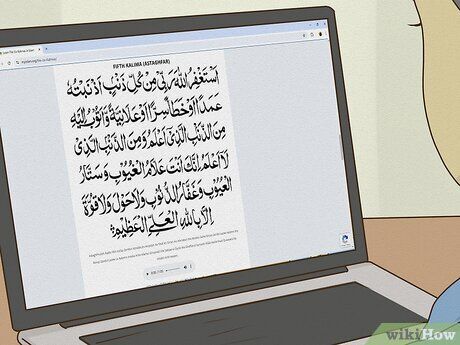 FIFTH KALIMA (ASTAGHFAR)
اَسْتَغْفِرُ اللهَ رَبِّىْ مِنْ كُلِّ ذَنْبٍ اَذْنَبْتُهٗ
عَمَدًا اَوْ خَطَأً سِرًّا اَوْ عَلَانِيَةً وَّاَتُوْبُ اِلَيْهِ
مِنَ الذَّنْبِ الَّذِىْٓ اَعْلَمُ وَمِنَ الذَّنْبِ الَّذِىْ
لَآ اَعْلَمُ اِنَّكَ اَنْتَ عَلَّامُ الْغُيُوْبِ وَسَتَّارُ
الْعُيُوْبِ وَغَفَّارُ الذُّنُوْبِ وَلَا حَوْلَ وَلَا قُوَّةَ
اِلَّا بِاللهِ الْعَلِىِّ الْعَظِيْمِ
wikiHow